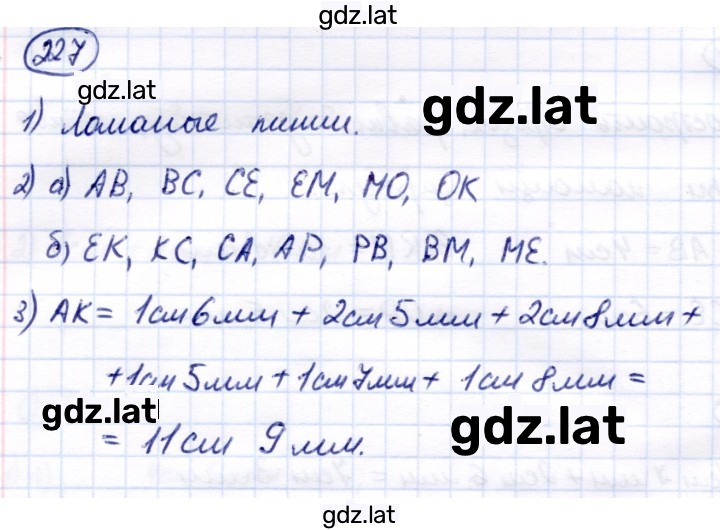 gdz.lat
227
gdz.lat
gdz.lat
1) Ломаные линии.
2) а) AB, BC, CE, EM, MO, OK
б) EK, KC, CA, AP, PB, BM, ME.
3) AK = 1см 6мм + 2см 5мм + 2см 8мм +
+ 1см 5мм + 1см 7мм + 1см 8мм =
gdz.lat
gdz.lat
= 11см 9мм.
gdz.lat